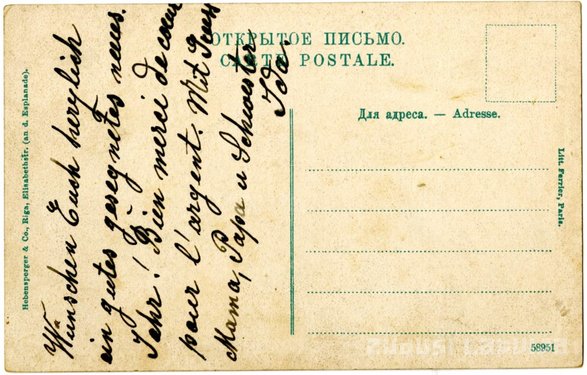 ОТКРЫТОЕ ПИСЬМО.
CARTE POSTALE.
Для адреса. — Adresse.
Wünschen Euch herzlich
ein gutes gesegnetes neues
Jahr! Bien merci de coeur
pour l'argent. Mit Gruss
Mama, Papa u Schwester
Ida.
Hebensperger & Co., Riga, Elisabethstr. (an d. Esplanade).
Litt. Ferrier, Paris.
58951